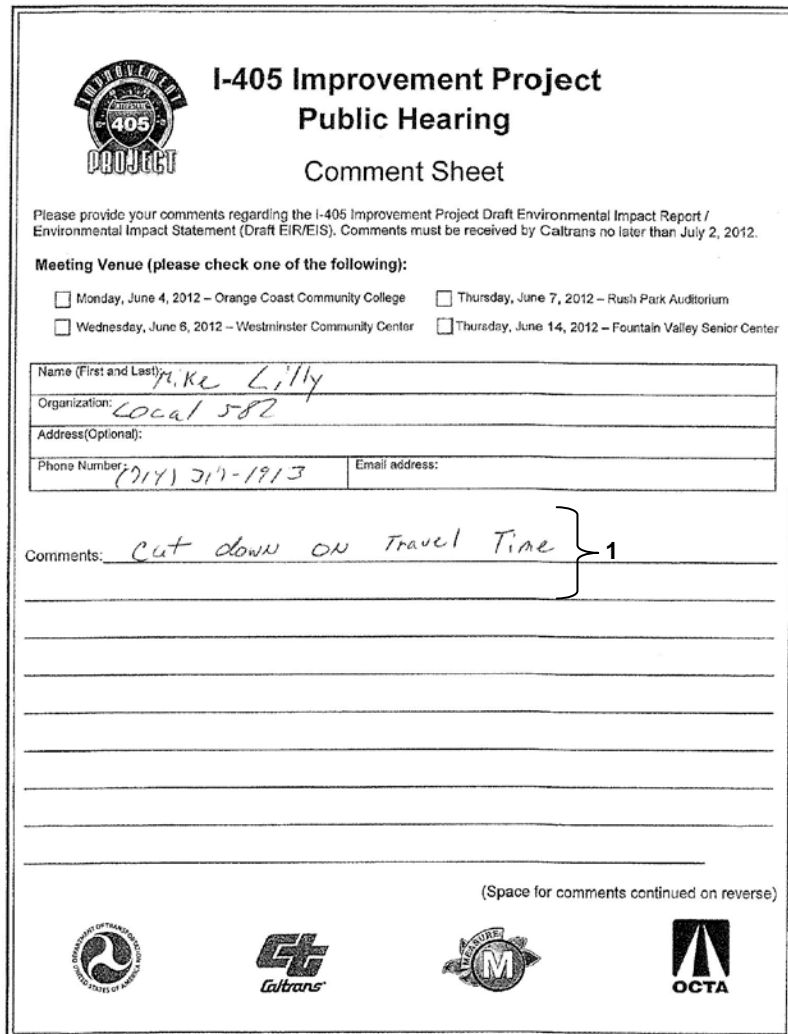 IMPROVEMENT
INTERSTATE
405
PROJECT
I-405 Improvement Project
Public Hearing
Comment Sheet
Please provide your comments regarding the I-405 Improvement Project Draft Environmental Impact Report /
Environmental Impact Statement (Draft EIR/EIS). Comments must be received by Caltrans no later than July 2, 2012.
Meeting Venue (please check one of the following):
Monday, June 4, 2012 – Orange Coast Community College
Thursday, June 7, 2012 – Rush Park Auditorium
Wednesday, June 6, 2012 – Westminster Community Center
Thursday, June 14, 2012 – Fountain Valley Senior Center
Name (First and Last): Mike Lilly
Organization: Local 582
Address(Optional):
Phone Number: (714) -1913
Email address:
Comments: Cut down on Travel Time
1
(Space for comments continued on reverse)
DEPARTMENT OF TRANSPORTATION
UNITED STATES OF AMERICA
Ct
Caltrans
MEASURE
M
OCTA